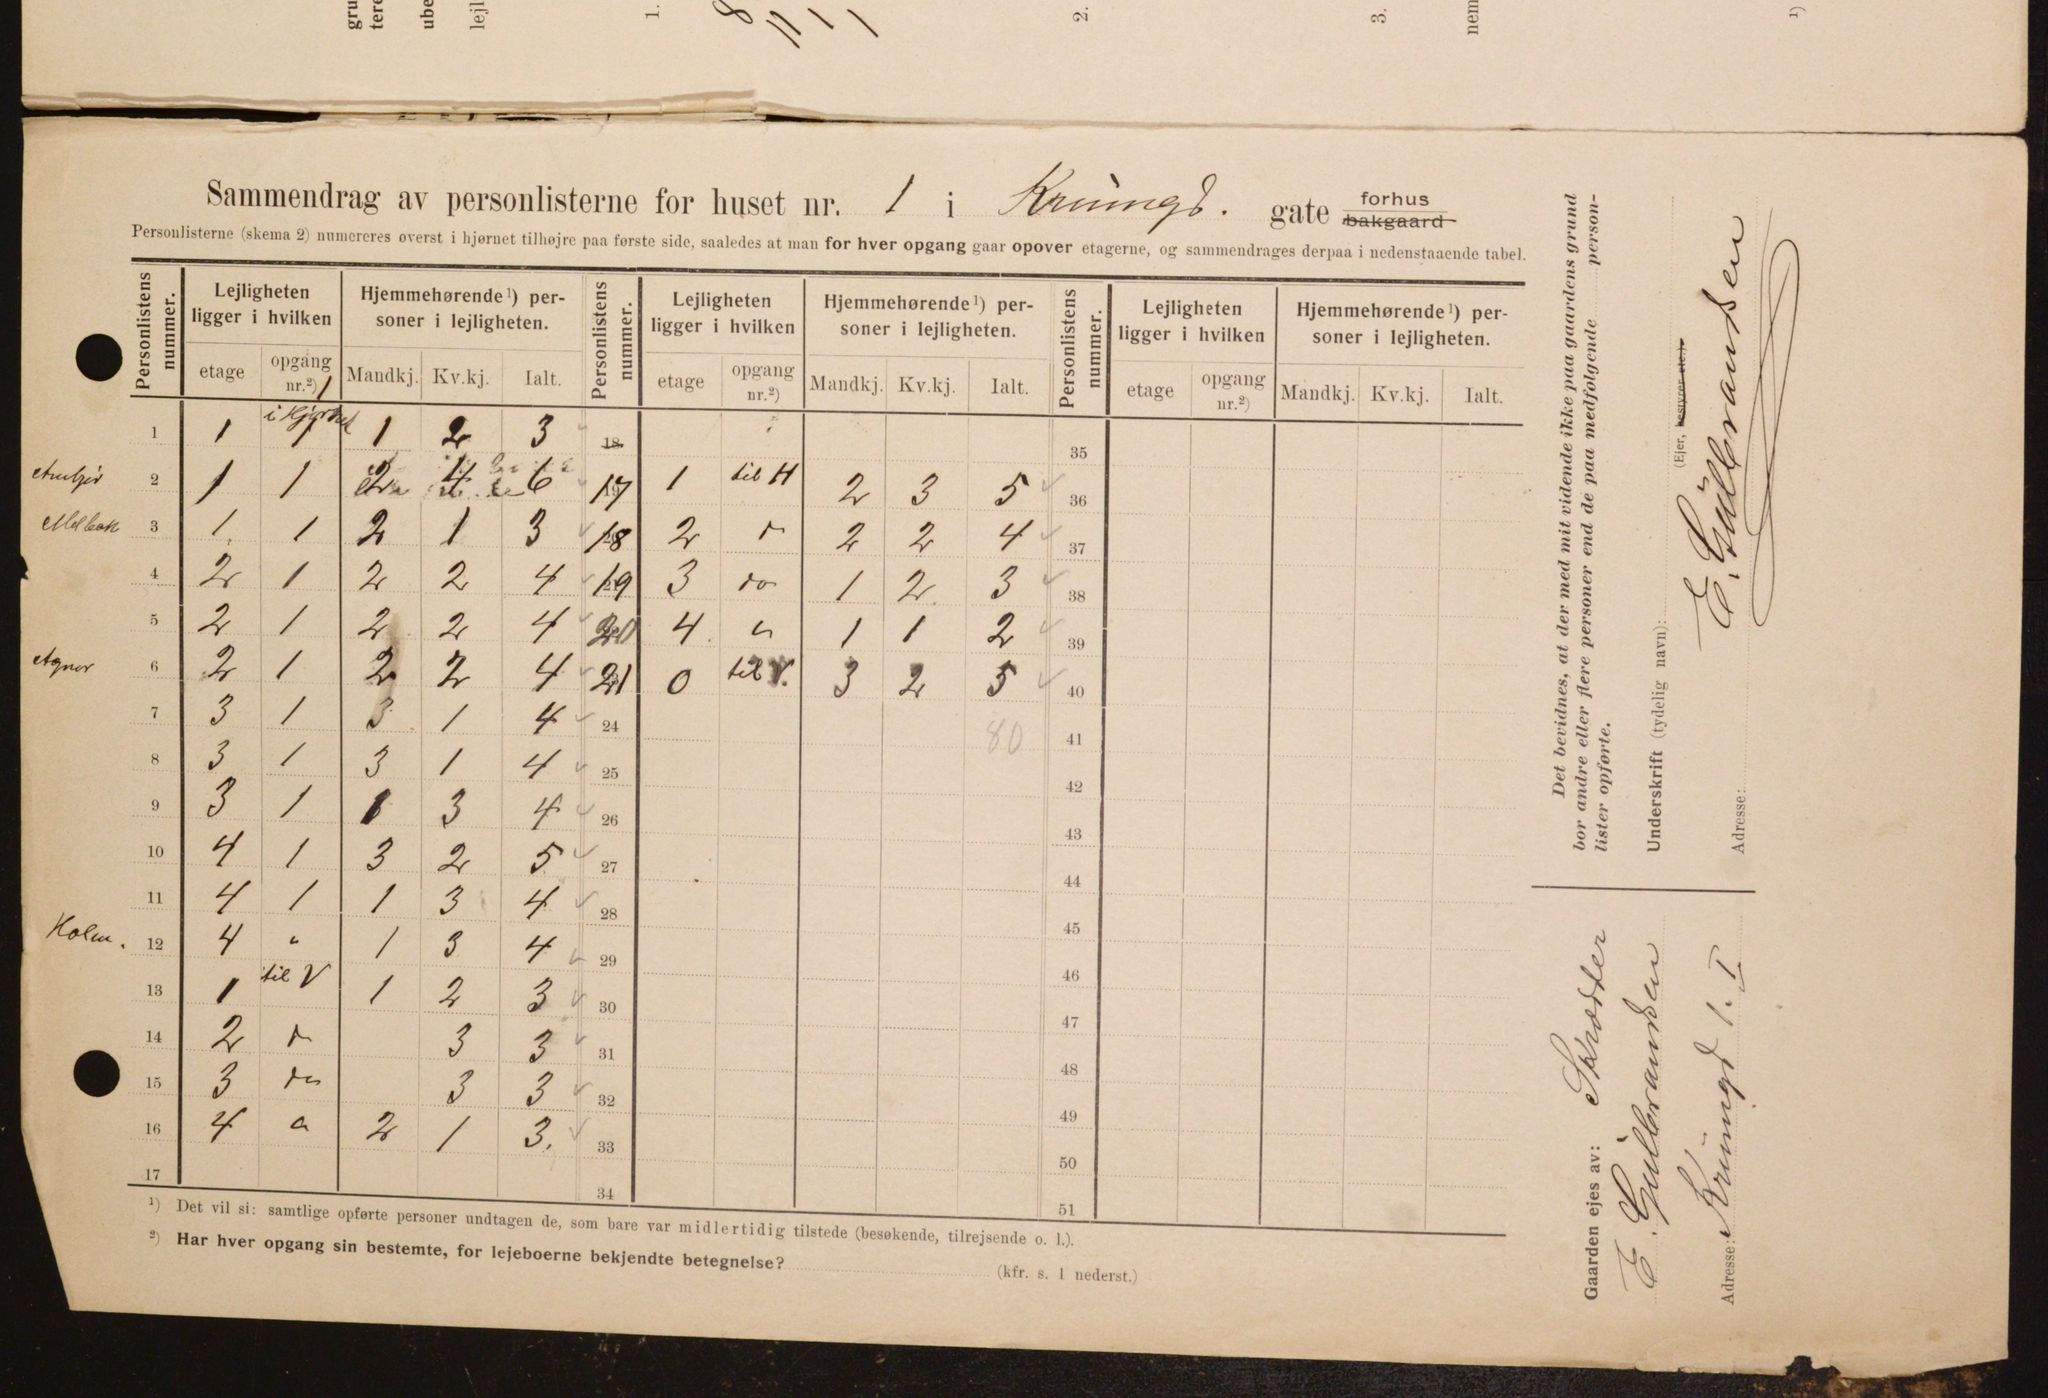 gru
tere
ube
lejl
1.
2.
3.
nem
1)
Sammendrag av personlisterne for huset nr. 1 i Krumgd. gate forhus bakgaard
Personlisterne (skema 2) numereres øverst i hjørnet tilhøjre paa første side, saaledes at man for hver opgang gaar opover etagerne, og sammendrages derpaa i nedenstaaende tabel.
Personlistens nummer. Lejligheten ligger i hvilken Hjemmehørende¹) personer i lejligheten. Personlistens nummer. Lejligheten ligger i hvilken Hjemmehørende¹) personer i lejligheten. Personlistens nummer. Lejligheten ligger i hvilken Hjemmehørende¹) personer i lejligheten.
etage opgang nr.²) Mandkj. Kv.kj. Ialt. etage opgang nr.²) Mandkj. Kv.kj. Ialt. etage opgang nr.²) Mandkj. Kv.kj. Ialt.
1 1 i Hjørnet 1 1 2 3 18 35
2 1 1 2 4 6 17 1 til H 2 3 5 36
3 1 1 2 1 3 18 2 do 2 2 4 37
4 2 1 2 2 4 19 3 do 1 2 3 38
5 2 1 2 2 4 20 4 " 1 1 2 39
Agner 6 2 1 2 2 4 21 0 til V. 3 2 5 40
7 3 1 3 1 4 24 80 41
8 3 1 3 1 4 25 42
9 3 1 1 3 4 26 43
10 4 1 3 2 5 27 44
11 4 1 1 3 4 28 45
Holm. 12 4 " 1 3 4 29 46
13 1 til V 1 2 3 30 47
14 2 do 3 3 31 48
15 3 do 3 3 32 49
16 4 " 2 1 3. 33 50
17 34 51
¹) Det vil si: samtlige opførte personer undtagen de, som bare var midlertidig tilstede (besøkende, tilrejsende o. l.).
²) Har hver opgang sin bestemte, for lejeboerne bekjendte betegnelse? (kfr. s. 1 nederst.)
Det bevidnes, at der med mit vidende ikke paa gaardens grund
bor andre eller flere personer end de paa medfølgende person-
lister opførte.
Underskrift (tydelig navn):
(Ejer, bestyrer etc.).
E. Gulbrandsen
Adresse:
Gaarden ejes av: Skrædder
E. Gulbrandsen
Adresse: Krumgd 1. I